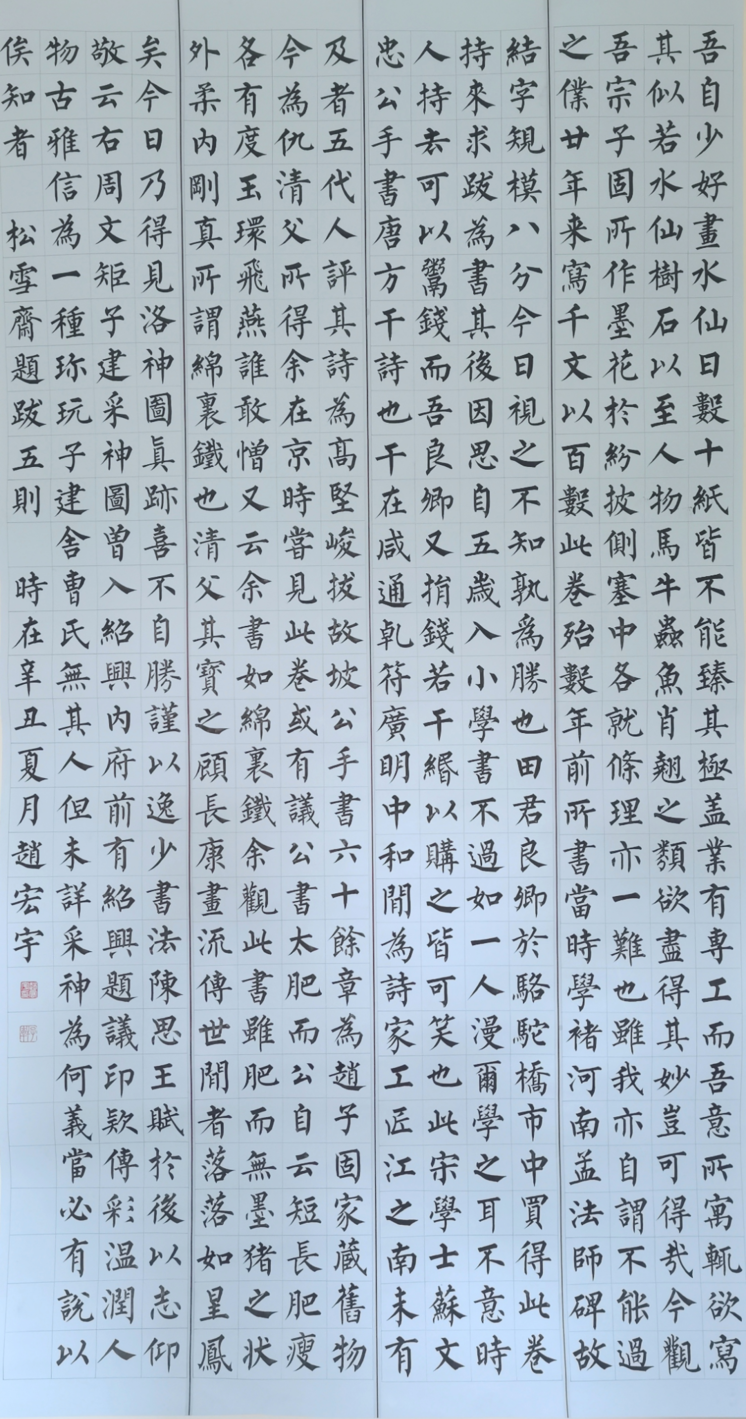 吾自少好畫水仙日數十紙皆不能臻其極盖業有専工而吾意所寓輒欲寫
其似若水仙樹石以至人物馬牛蟲魚肖翹之類欲盡得其妙豈可得哉今觀
吾宗子固所作墨花於紛披側塞中各就條理亦一難也雖我亦自謂不能過
之僕廿年来寫千文以百數此卷殆數年前所書當時學褚河南孟法師碑故
結字規模八分今日視之不知孰爲勝也田君良卿於駱駝橋市中買得此卷
持來求跋為書其後因思自五歲入小學書不過如一人漫爾學之耳不意時
人持去可以鬻錢而吾良卿又捐錢若干緡以購之皆可笑也此宋學士蘇文
忠公手書唐方干詩也干在咸通乹符廣明中和間為詩家工匠江之南未有
及者五代人評其詩為高堅峻拔故坡公手書六十餘章為趙子固家蔵舊物
今為仇清父所得余在京時嘗見此卷或有議公書太肥而公自云短長肥瘦
各有度玉環飛燕誰敢憎又云余書如綿裏鐵余觀此書雖肥而無墨猪之状
外柔内剛真所謂綿裏鐵也清父其寶之顧長康畫流傳世間者落落如星鳳
矣今日乃得見洛神圖眞跡喜不自勝謹以逸少書法陳思王賦於後以志仰
敬云右周文矩子建采神圖曽入紹興内府前有紹興題議印款傳彩温潤人
物古雅信為一種珎玩子建舍曹氏無其人但未詳采神為何義當必有說以
俟知者 松雪齋題跋五則 時在辛丑夏月趙宏宇